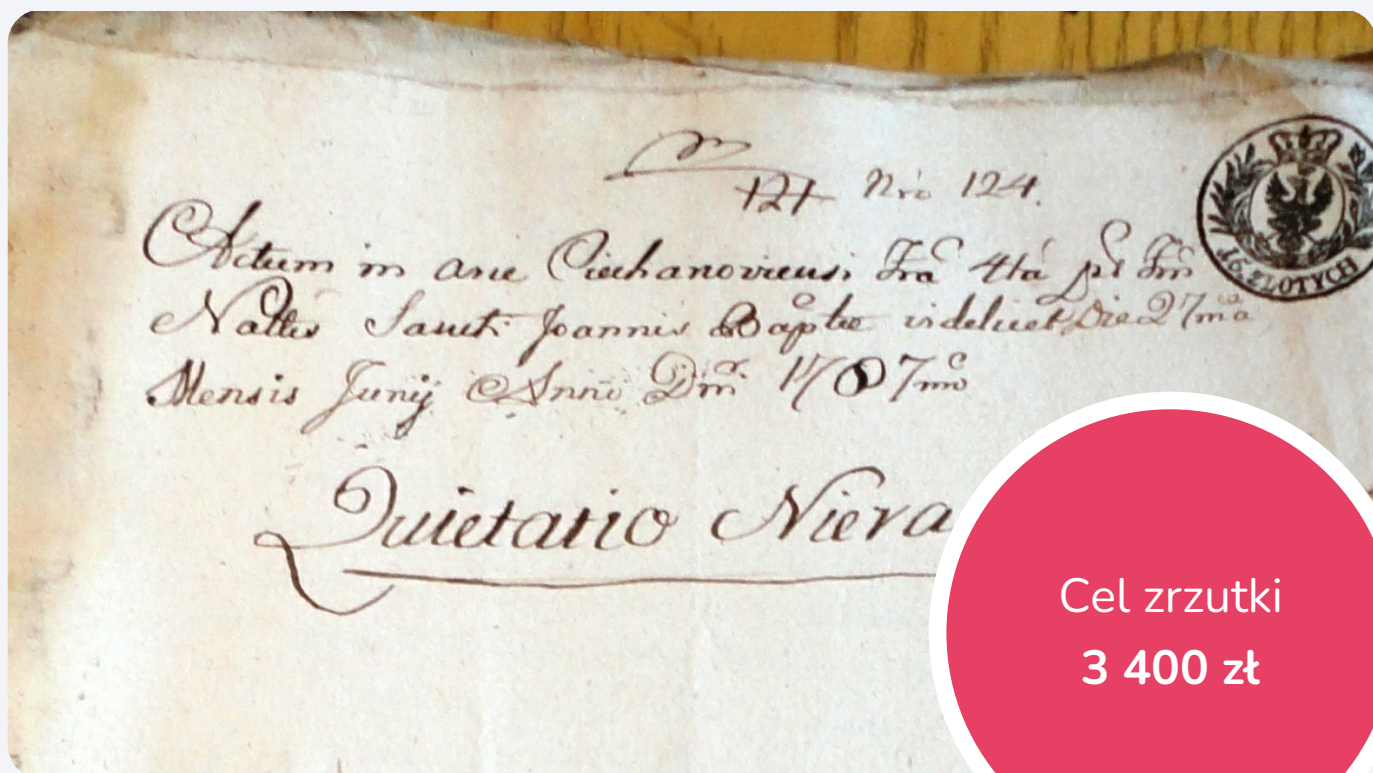 124 Nrõ 124.
Actum in arce Ciechanoviensi Frã 4tá pt Fm
Nattis Sancti Joannis Baptae videlicet Die 27ma
Mensis Junij Anno Dni 1787mo
Quietatio Niera
16. ZŁOTYCH
Cel zrzutki
3 400 zł